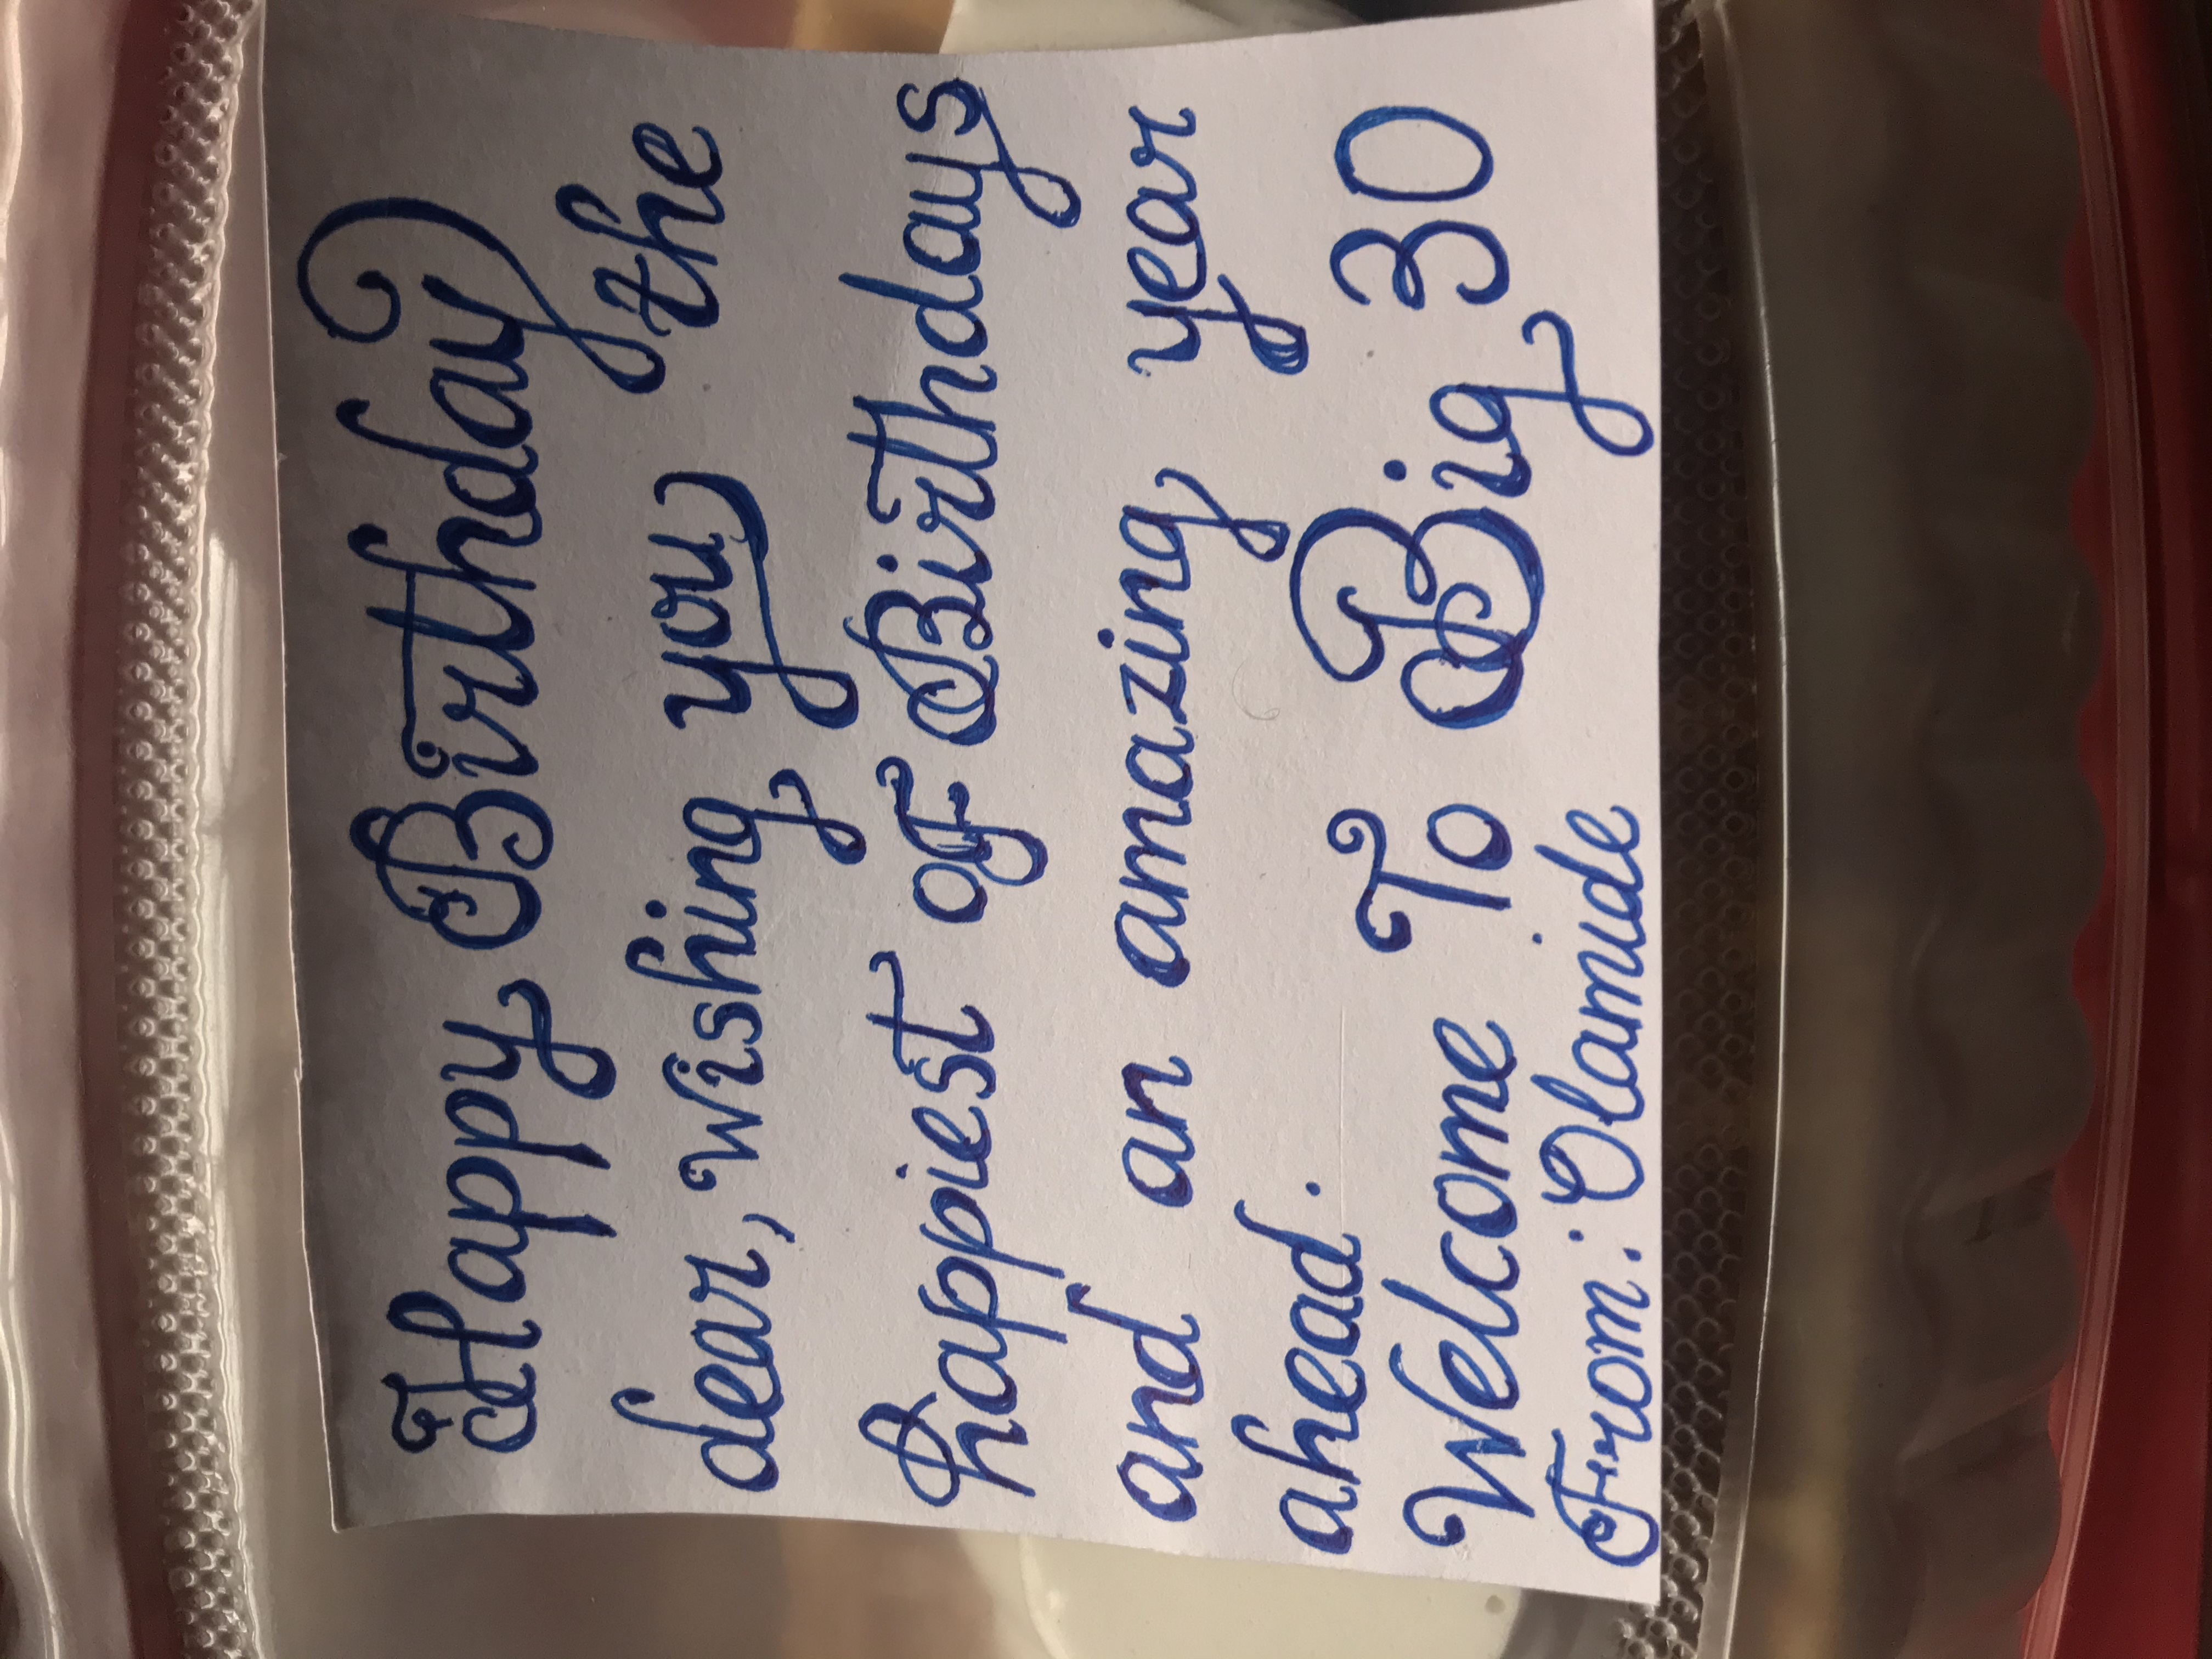 Happy Birthday
dear, Wishing you the
happiest of Birthdays
and an amazing year
ahead.
Welcome To Big 30
From: Olamide